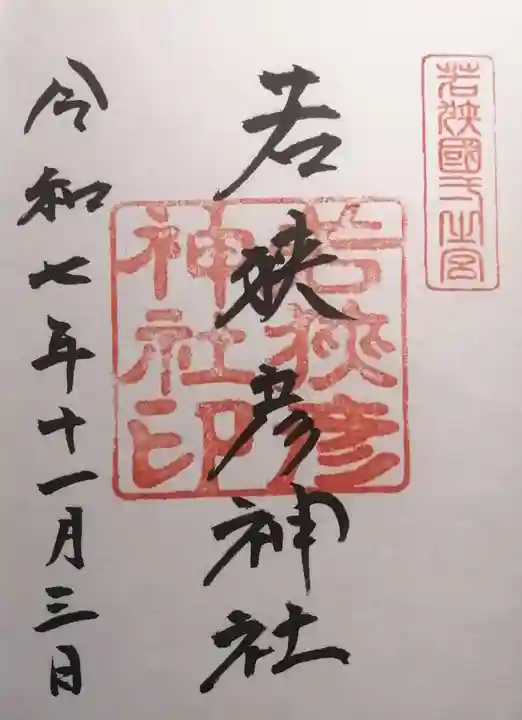 若狭國一宮
若狭彦神社
若狭彦
神社印
令和七年十一月三日